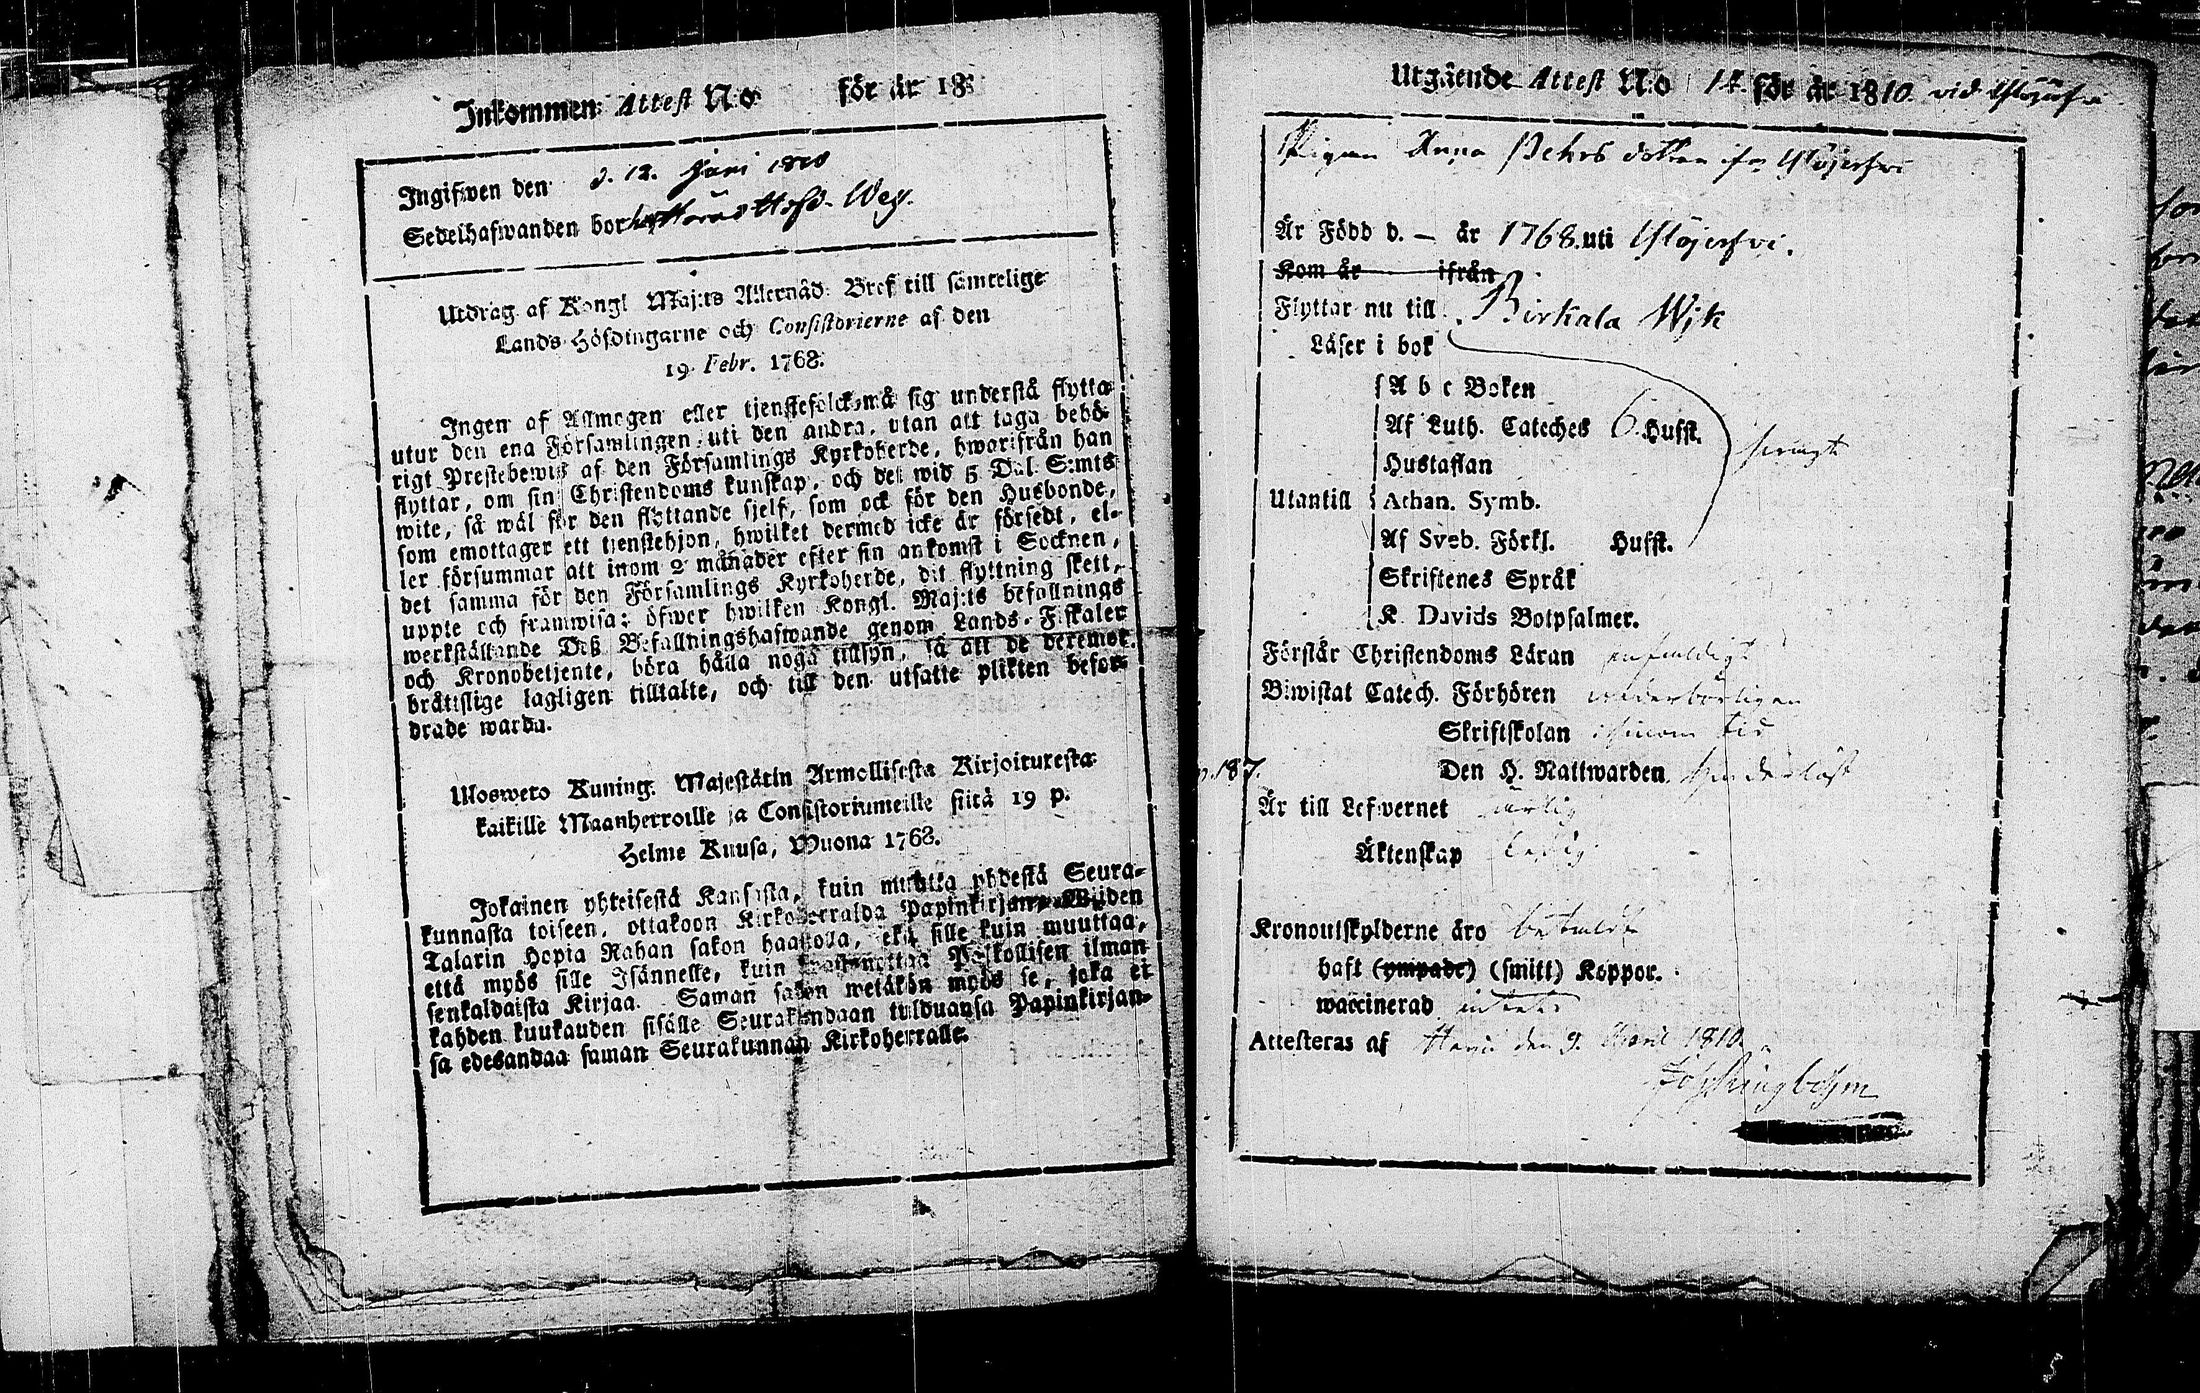 Inkommen: Attest N:o för år 18
Ingifwen den d. 12. Juni 1810
Sedelhafwanden bor hos Weg.
Utdrag af Kongl Maj:ts Allernåd: Bref till samtelige
Lands Höfdingarne och Consistorierne af den
19. Febr. 1768.
Ingen af Allmogen eller tjenstefolck må sig understå flytta
utur den ena Församlingen uti den andra, utan att taga behö-
rigt Prestebewis af den Församlings Kyrkoherde, hworifrån han
flyttar, om sin Christendoms kunskap, och det wid 5 Dal. S:mts
wite, så wäl för den flyttande sjelf, som ock för den Husbonde,
som emottager ett tjenstehjon, hwilket dermed icke är försedt, el-
ler försummar att inom 2 månader efter sin ankomst i Socknen,
det samma för den Församlings Kyrkoherde, dit flyttning skett,
uppte och framwisa; öfwer hwilken Kongl. Maj:ts befallnings
werkställande Deß Befallningshafwande genom Lands-Fiskaler
och Kronobetjente, böra hålla noga tillsyn, så att de deremot
bråttslige lagligen tilltalte, och till den utsatte plikten befor-
drade warda.
Uloswero Kuning. Majestätin Armollisesta Kirjoituresta
kaikille Maanherroille ja Consistoriumeille siitä 19 p.
Helme Kuusa, Wuona 1768.
Jokainen yhteisestä Kansasta, kuin muutta yhdestä Seura-
kunnasta toiseen, ottakoon Kirkoherralda Papinkirjan, Wijden
Talarin Hopia Rahan sakon haastolla, sekä sille kuin muuttaa,
että myös sille Isännelle, kuin wastanottaa Palkollisen ilman
senkaldaista Kirjaa. Saman sakon wetäkön myös se, joka ei
kahden kuukauden sisälle Seurakundaan tulduansa Papinkirjan-
sa edesandaa saman Seurakunnan Kirkoherralle.
Utgående Attest N:o 14. för år 1810. vid Ylöjerfvi
Pigan Anna Pehrs dotter ifr. Ylöjerfvi
Är Född d. — år 1768. uti Ylöjerfvi.
Kom år ifrån
Flyttar nu till Birkala Wik
Läser i bok
A b c Boken
Af Luth. Cateches 6. Hufst.
Hustaflan
Utantill Athan. Symb.
Af Sveb. Förkl. Hufst.
Skriftenes Språk
K. Davids Botpsalmer.
Förstår Christendoms Läran enfaldigt
Biwistat Catech. Förhören wederbörligen
Skriftskolan i sinom tid
p. 187. Den H. Nattwarden
Är till Lefwernet ärlig
Äktenskap ledig
Kronoutskylderne äro betalde
haft (ympade) (smitt) Koppor.
waccinerad
Attesteras af den 9. April 1810.